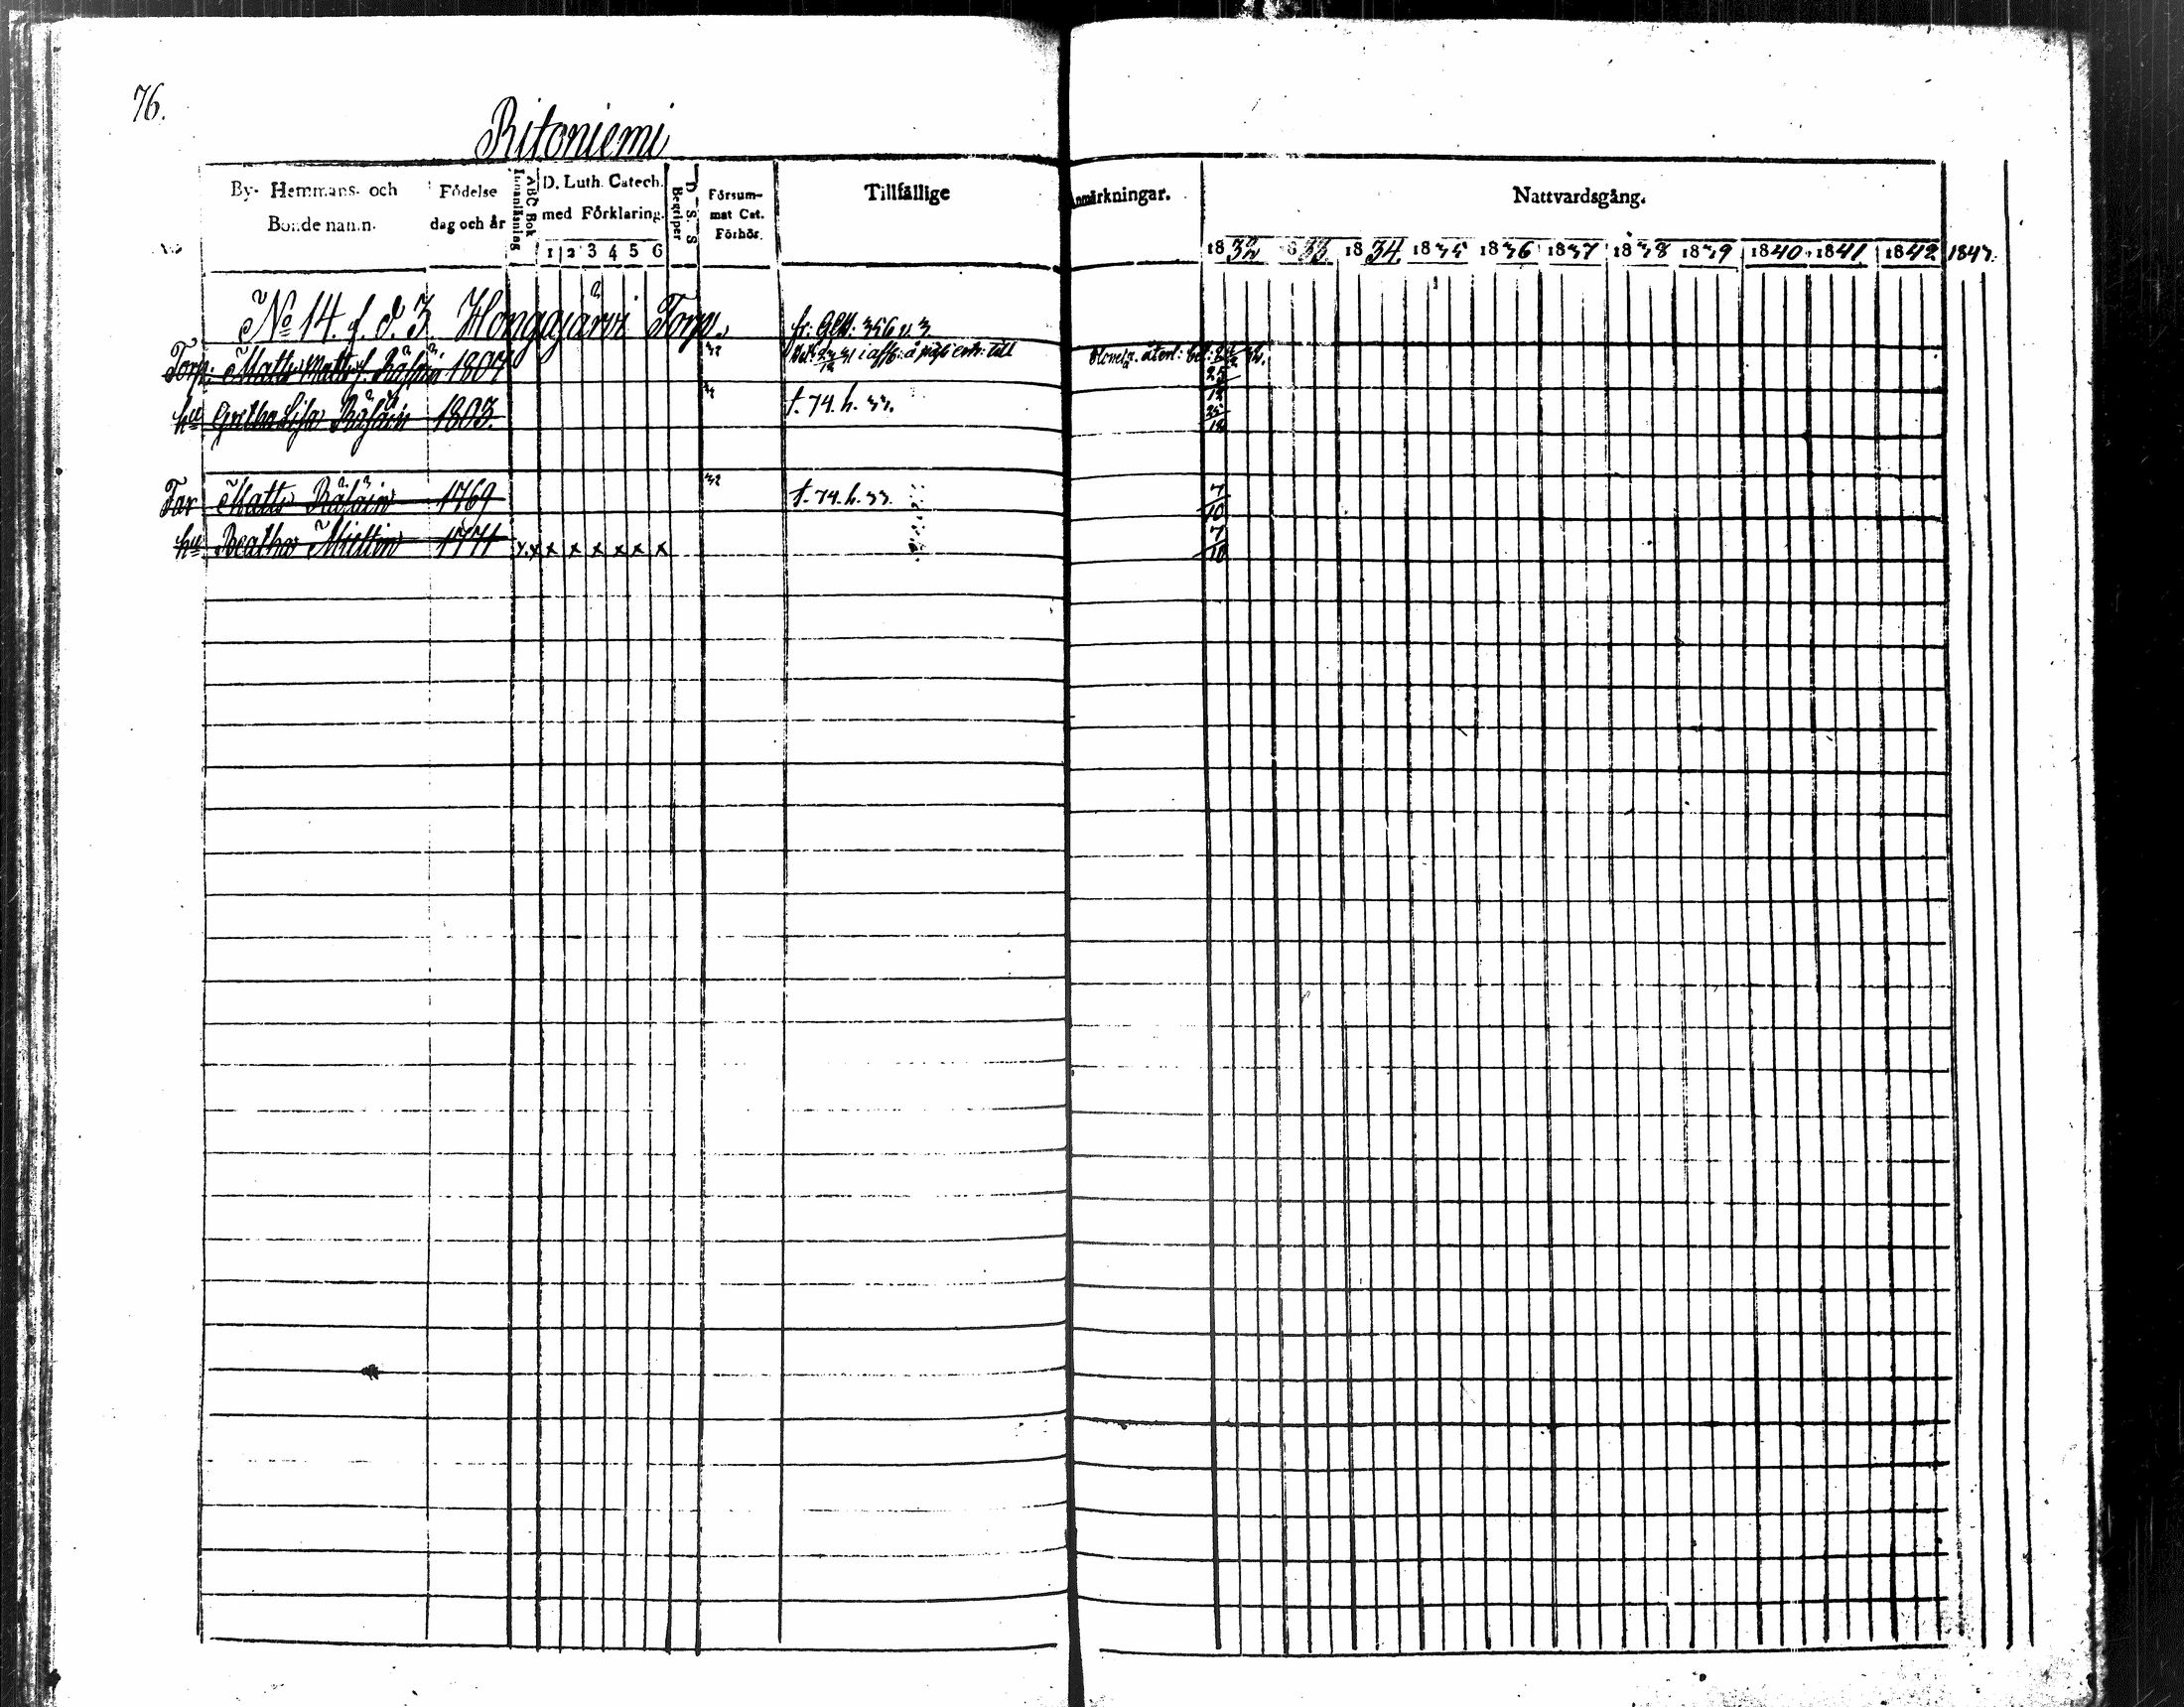 76.
Ritoniemi
By- Hemmans- och Bonde namn.
Födelse dag och år
ABC Bok
Innanläsning
D. Luth. Catech. med Förklaring.
1 2 3 4 5 6
D. S. S
Begriper
Försum-
mat Cat.
Förhör.
Tillfällige
Anmärkningar.
Nattvardsgång.
1832 1833 1834 1835 1836 1837 1838 1839 1840 1841 1842 1843
No 14. f. d. 3 Hongajärvi Torp.
fr: 356 v. 3
Torp: Matts Matts f. Räsäin 1807 32 till 25/12
hu Gretha Lisa Räsäin 1803. t. 74. h. 33. 25/12
Far Matts Räsäin 1769 32 t. 74. h. 33. 7/10
hu Beatha Miettin 1771 x x x x x x x x 7/10